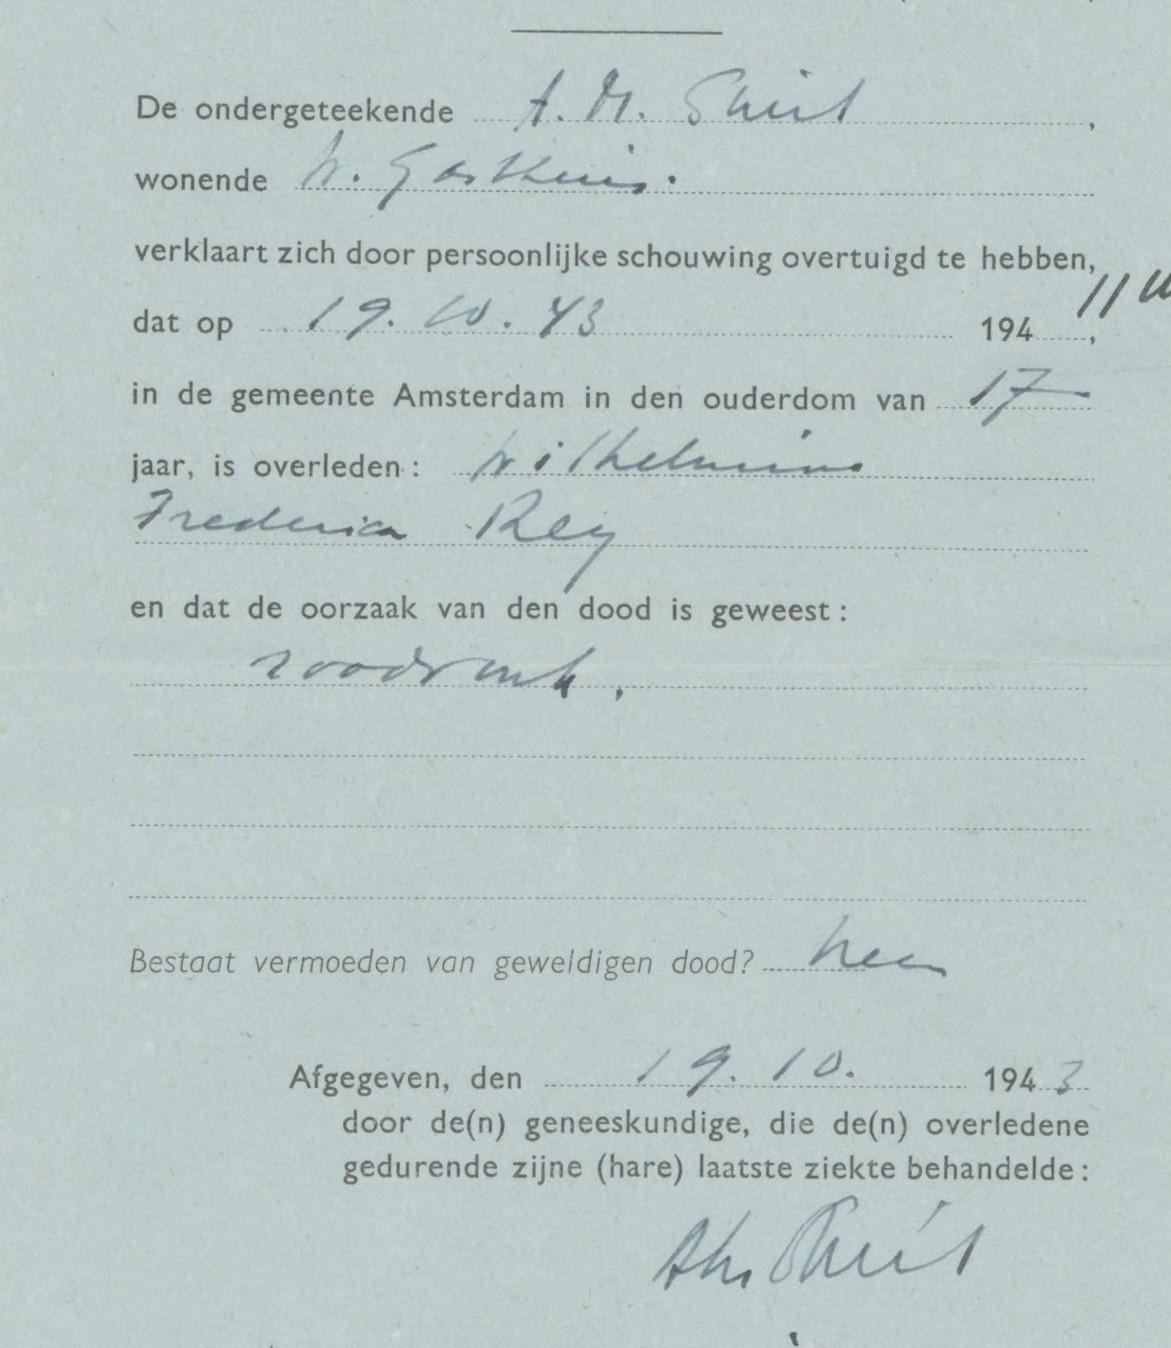 De ondergeteekende A. M. Smit,
wonende W. Gasthuis.
verklaart zich door persoonlijke schouwing overtuigd te hebben,
dat op 19.10.43 194 , 11 u
in de gemeente Amsterdam in den ouderdom van 17
jaar, is overleden: Wilhelmina
Frederica Rey
en dat de oorzaak van den dood is geweest:
Bestaat vermoeden van geweldigen dood? neen
Afgegeven, den 19.10. 1943
door de(n) geneeskundige, die de(n) overledene
gedurende zijne (hare) laatste ziekte behandelde: